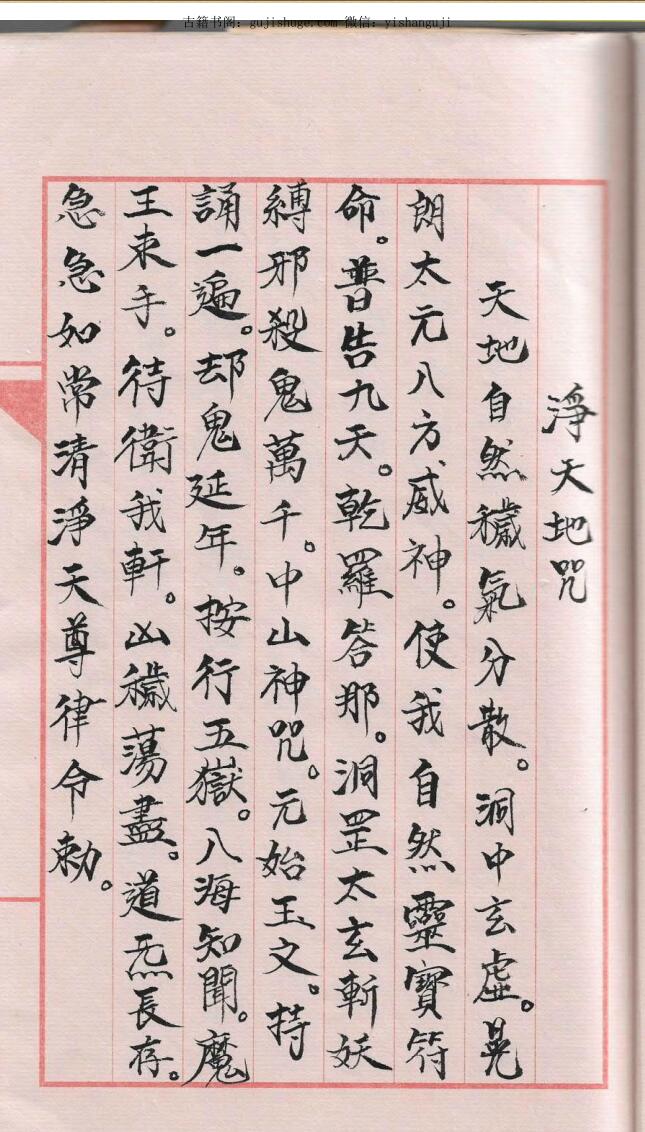 古籍书阁：gujishuge.com 微信：yishanguji
淨天地咒
天地自然穢氣分散。洞中玄虛。晃
朗太元八方威神。使我自然靈寶符
命。普告九天。乾羅答那。洞罡太玄斬妖
縛邪殺鬼萬千。中山神咒。元始玉文。持
誦一遍。却鬼延年。按行五嶽。八海知聞。魔
王束手。待衛我軒。凶穢蕩盡。道炁長存。
急急如常清淨天尊律令勅。